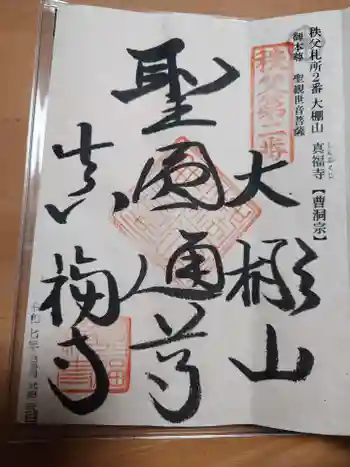 秩父札所2番 大棚山 真福寺【曹洞宗】
しんぷくじ
御本尊 聖観世音菩薩
秩父第二番
大棚山
聖圓通尊
真福寺